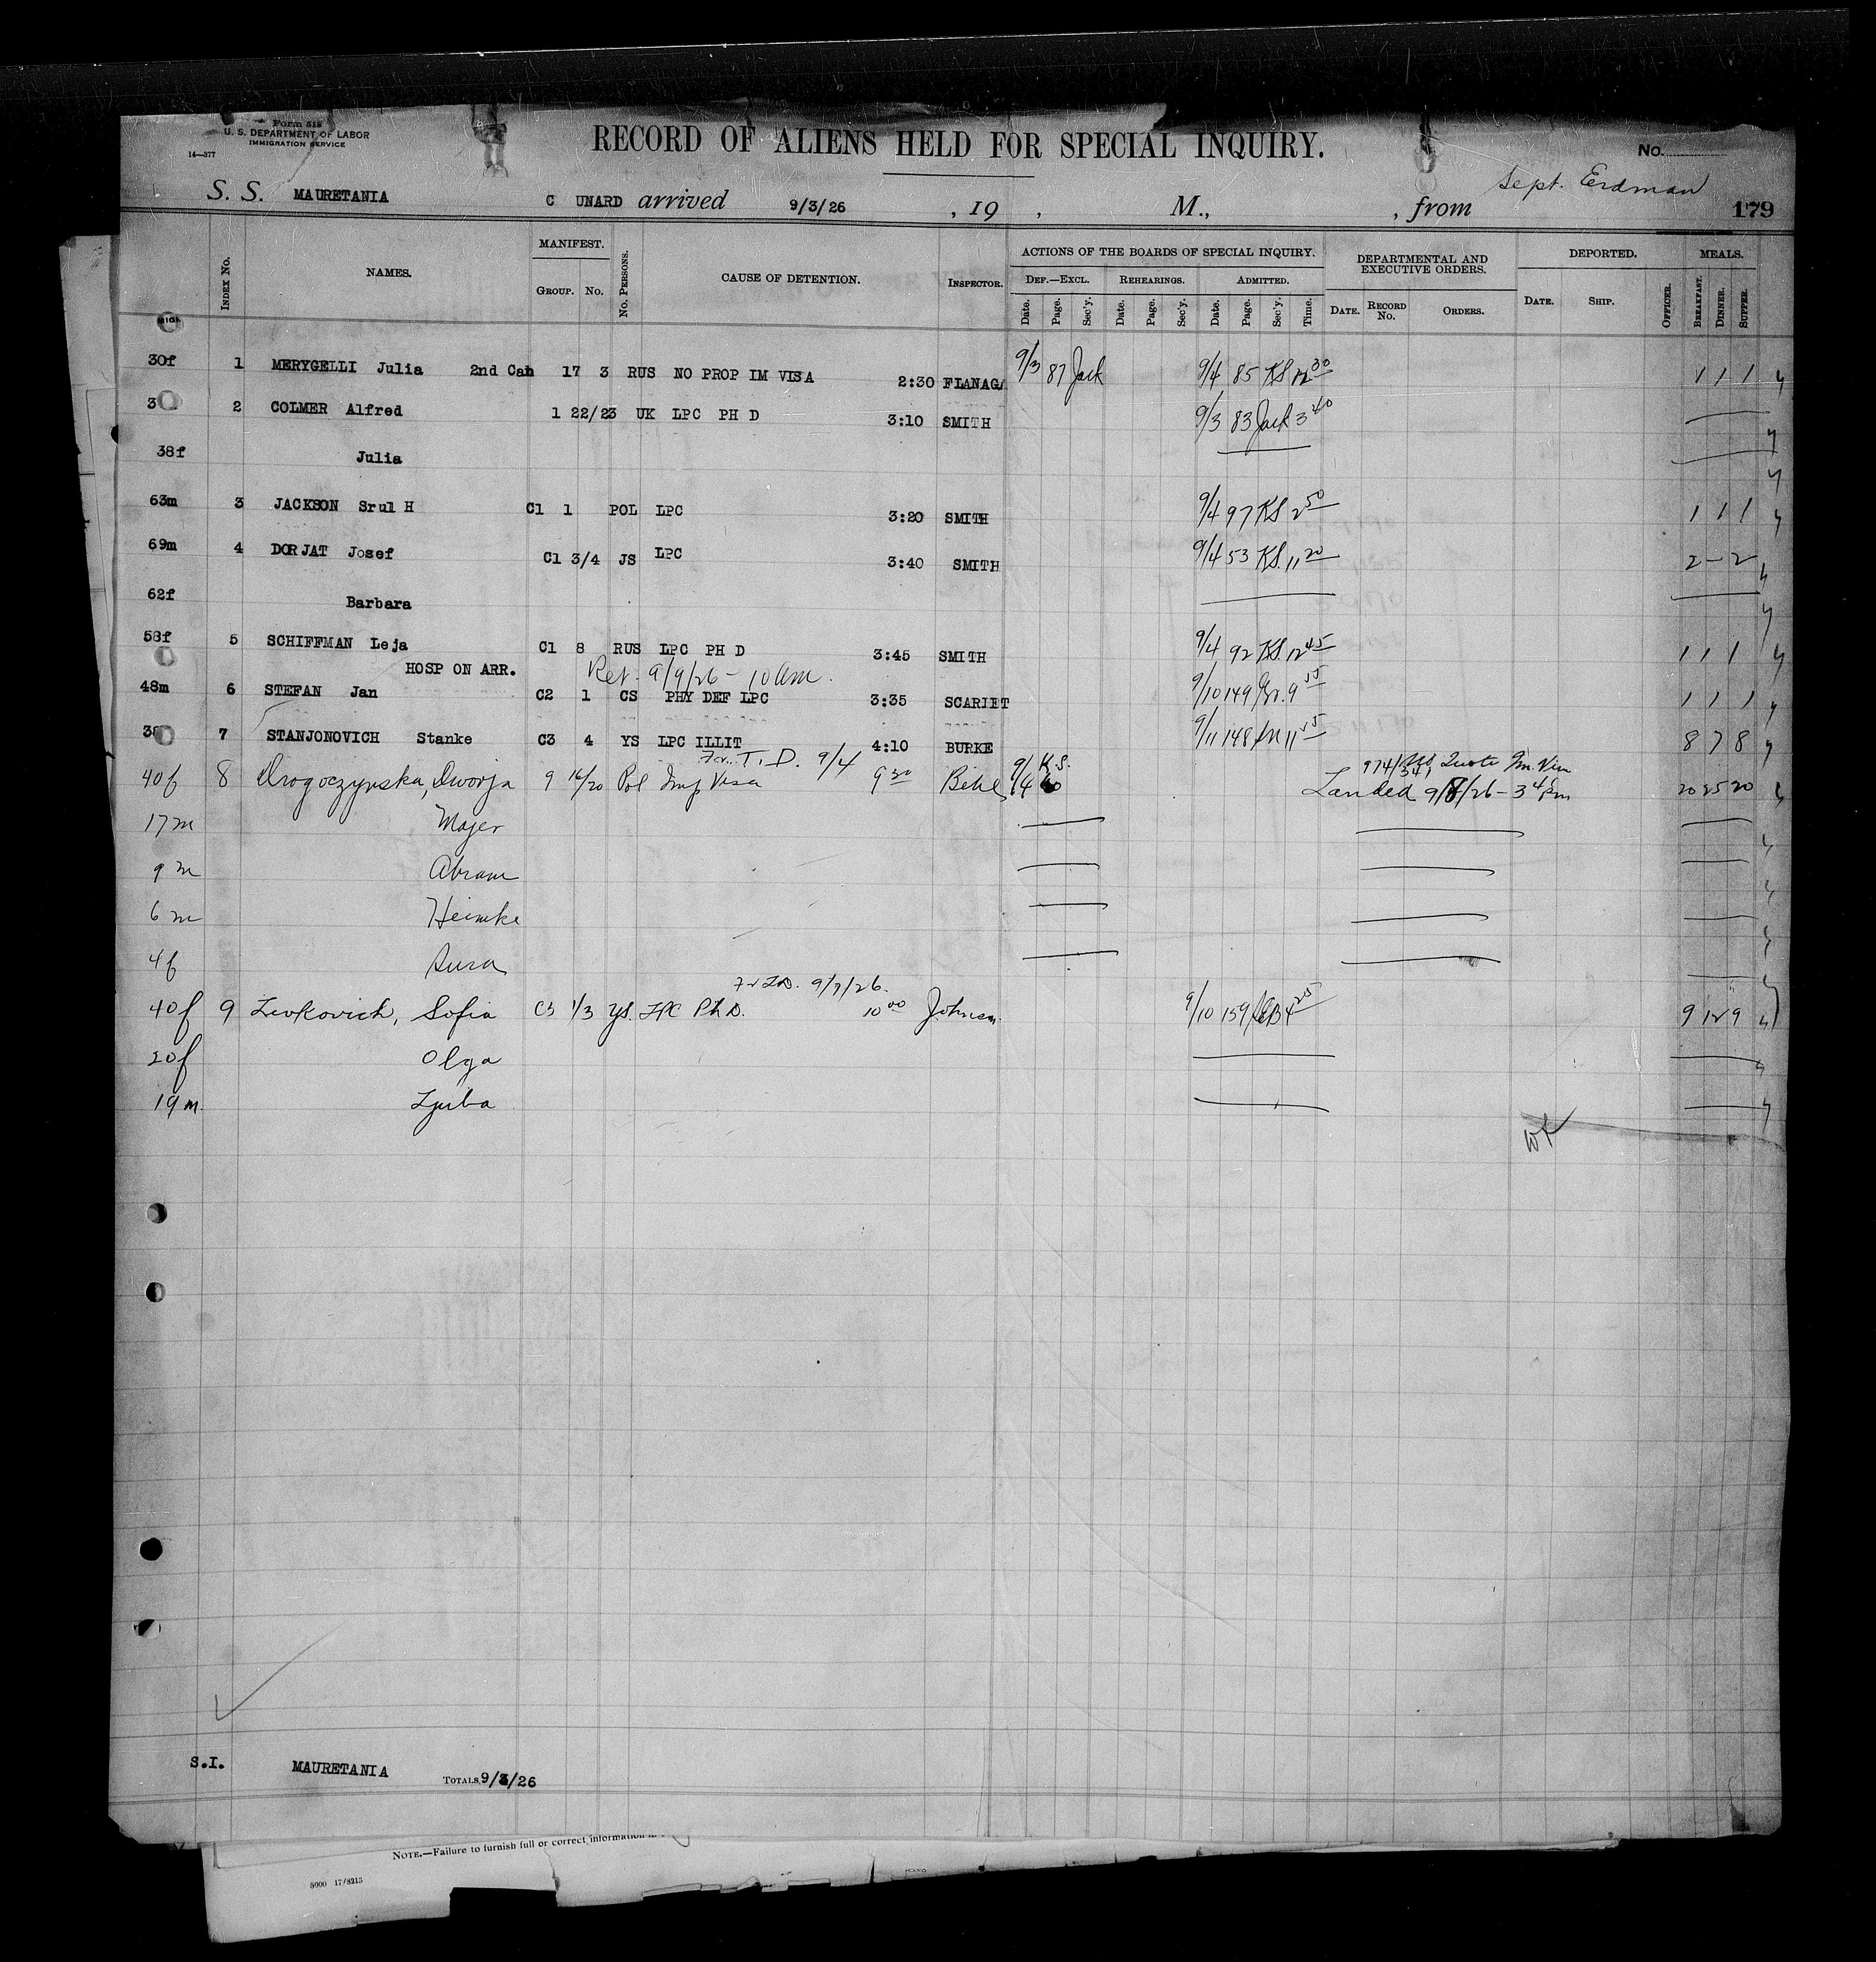 Form 518
U. S. DEPARTMENT OF LABOR
IMMIGRATION SERVICE
14—377
RECORD OF ALIENS HELD FOR SPECIAL INQUIRY.
No.
Sept. Erdman
S. S. MAURETANIA C UNARD arrived 9/3/26 , 19 , M., , from 179
INDEX No. NAMES. MANIFEST. GROUP. No. No. PERSONS. CAUSE OF DETENTION. INSPECTOR. ACTIONS OF THE BOARDS OF SPECIAL INQUIRY. DEPARTMENTAL AND EXECUTIVE ORDERS. DEPORTED. MEALS.
DEF.—EXCL. REHEARINGS. ADMITTED.
Date. Page. Sec'y. Date. Page. Sec'y. Date. Page. Sec'y. Time. DATE. RECORD No. ORDERS. DATE. SHIP. OFFICER. BREAKFAST. DINNER. SUPPER.
30f 1 MERYGELLI Julia 2nd Cab 17 3 RUS NO PROP IM VISA 2:30 FLANAGA 9/3 87 Jack 9/4 85 KS 12 30 1 1 1
3 2 COLMER Alfred 1 22/23 UK LPC PH D 3:10 SMITH 9/3 83 Jack 3 40
38f Julia
63m 3 JACKSON Srul H C1 1 POL LPC 3:20 SMITH 9/4 97 KS 2 50 1 1 1
69m 4 DORJAT Josef C1 3/4 JS LPC 3:40 SMITH 9/4 53 KS. 11 20 2 - 2
62f Barbara
58f 5 SCHIFFMAN Leja C1 8 RUS LPC PH D 3:45 SMITH 9/4 92 KS. 12 45 1 1 1
HOSP ON ARR. Ret. 9/9/26 - 10 am.
48m 6 STEFAN Jan C2 1 CS PHY DEF LPC 3:35 SCARLET 9/10 149 9 15 1 1 1
38 7 STANJONOVICH Stanke C3 4 YS LPC ILLIT 4:10 BURKE 9/11 148 11 15 8 7 8
For T. D. 9/4
40f 8 Drogoczynska, Dworja 9 16/20 Pol Imp Visa 9 30 9/4 60 K.S. Landed 9/8/26 - 3 pm 20 25 20
17m Majer
9m Abram
6m Heimke
4f Sura
Fr T.D. 9/9/26.
40f 9 Livkovich, Sofia C3 1/3 YS. LPC Ph D. 10 00 Johnson. 9/10 159 4 25 9 12 9
20f Olga
19m. Ljuba
S.I. MAURETANIA TOTALS, 9/3/26
NOTE.—Failure to furnish full or correct information
5000 17/8213